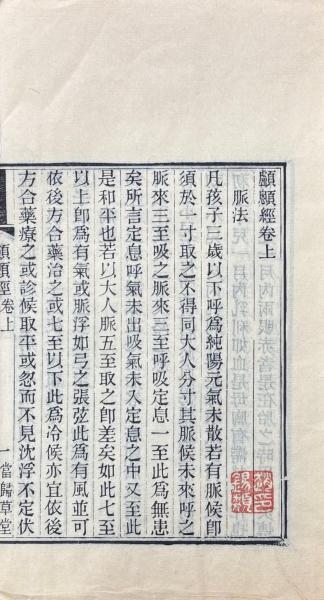 顱顖經卷上
脈法
凡孩子三歲以下呼爲純陽元氣未散若有脈候卽
須於一寸取之不得同大人分寸其脈候未來呼之
脈來三至吸之脈來三至呼吸定息一至此爲無患
矣所言定息呼氣未出吸氣未入定息之中又至此
是和平也若以大人脈五至取之卽差矣如此七至
以上卽爲有氣或脈浮如弓之張弦此爲有風並可
依後方合藥治之或七至以下此爲冷候亦宜依後
方合藥療之或診候取平或忽而不見沈浮不定伏
顱顖經卷上
一當歸草堂